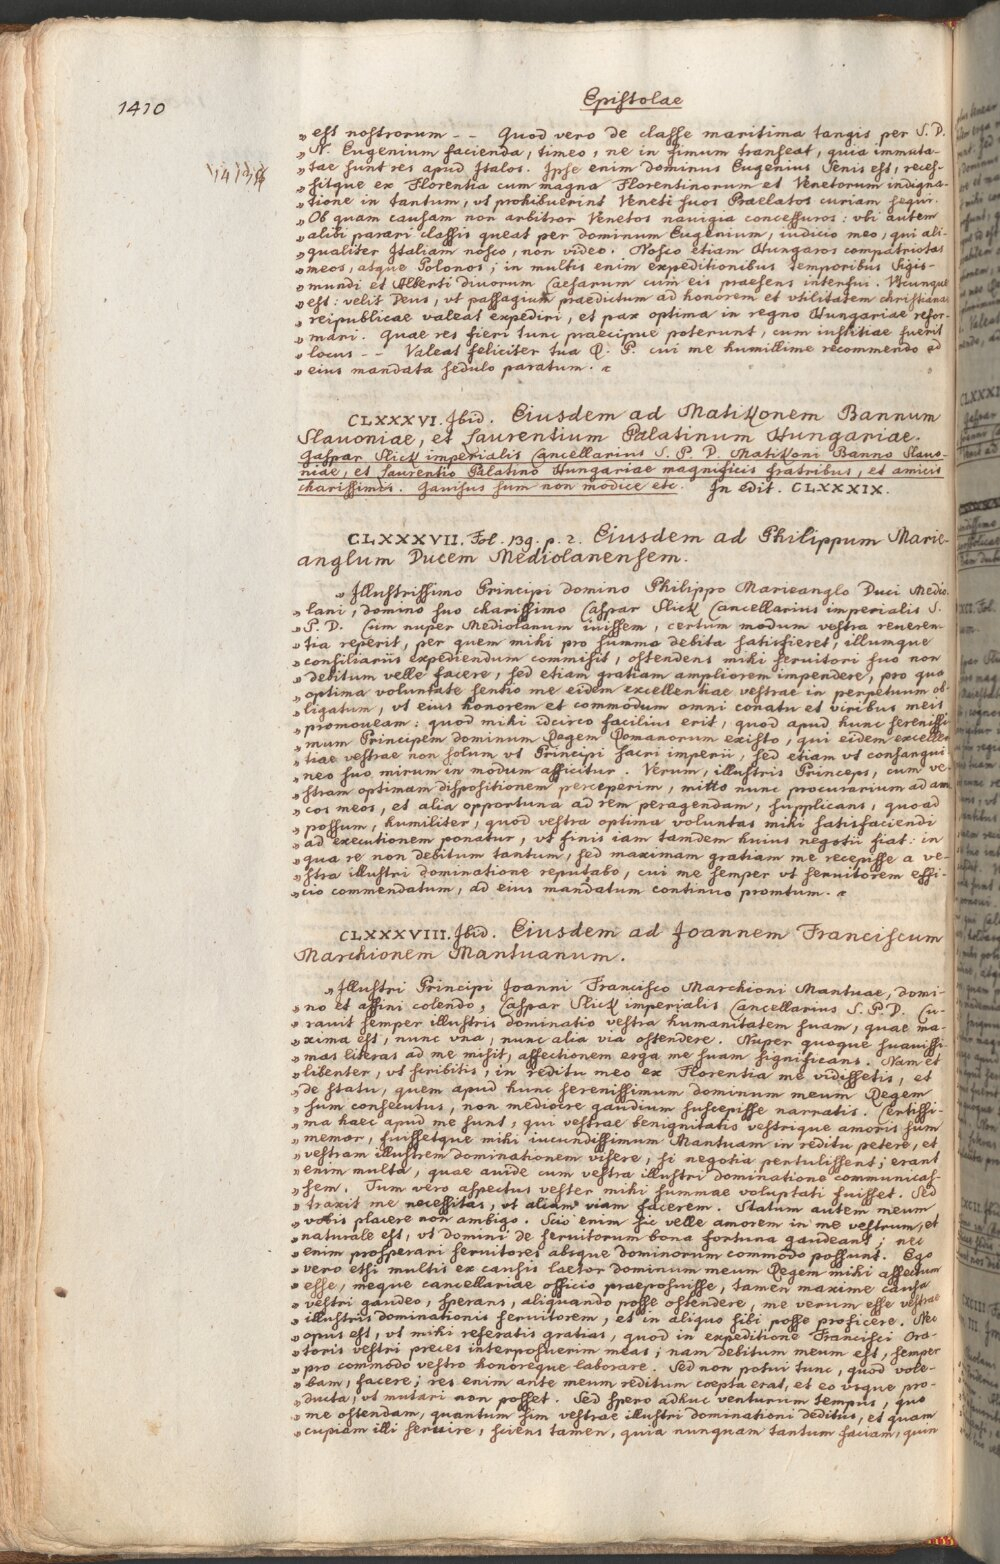 1410
Epistolae
„ est nostrorum - - Quod vero de classe maritima tangis per S. D.
„ N. Eugenium facienda, timeo, ne in fimum transeat, quia immuta-
„ tae sunt res apud Italos. Ipse enim dominus Eugenius Senis est, reces-
„ sitque ex Florentia cum magna Florentinorum et Venetorum indigna-
„ tione in tantum, vt prohibuerint Veneti suos Praelatos curiam sequi.
„ Ob quam causam non arbitror Venetos nauigia concessuros: vbi autem
„ alibi parari classis queat per dominum Eugenium, iudicio meo, qui ali-
„ qualiter Italiam nosco, non video. Nosco etiam Hungaros compatriotas
„ meos, atque Polonos; in multis enim expeditionibus temporibus Sigis-
„ mundi et Alberti diuorum Caesarum cum eis praesens interfui. Vtcunque
„ est: velit Deus, vt passagium praedictum ad honorem et vtilitatem christianae
„ reipublicae valeat expediri, et pax optima in regno Hungariae refor-
„ mari. Quae res fieri tunc praecipue poterunt, cum iustitiae fuerit
„ locus - - Valeat feliciter tua D. P. cui me humillime recommendo ad
„ eius mandata sedulo paratum.
CLXXXVI. Ibid. Eiusdem ad Matikonem Bannum
Slauoniae, et Laurentium Palatinum Hungariae.
Gaspar Slick imperialis Cancellarius S. P. D. Matikoni Banno Slauo-
niae, et Laurentio Palatino Hungariae magnificis fratribus, et amicis
charissimis. Gauisus sum non modice etc. In edit. CLXXXIX.
CLXXXVII. Fol. 139. p. 2. Eiusdem ad Philippum Marie-
anglum Ducem Mediolanensem.
„ Illustrissimo Principi domino Philippo Marieanglo Duci Medio-
„ lani, domino suo charissimo Caspar Slick Cancellarius imperialis S.
„ P. D. Cum nuper Mediolanum iuissem, certum modum vestra reueren-
„ tia reperit, per quem mihi pro summa debita satisfieret, illumque
„ consiliariis expediendum commisit, ostendens mihi seruitori suo non
„ debitum velle facere, sed etiam gratiam ampliorem impendere, pro qua
„ optima voluntate sentio me eidem excellentiae vestrae in perpetuum ob-
„ ligatum, vt eius honorem et commodum omni conatu et viribus meis
„ promoueam: quod mihi idcirco facilius erit, quod apud hunc serenissi-
„ mum Principem dominum Regem Romanorum existo, qui eidem excellen-
„ tiae vestrae non solum vt Principi sacri imperii, sed etiam vt consangui-
„ neo suo mirum in modum afficitur. Verum, illustris Princeps, cum ve-
„ stram optimam dispositionem perceperim, mitto nunc procurarium ad ami-
„ cos meos, et alia opportuna ad rem peragendam, supplicans, quoad
„ possum, humiliter, quod vestra optima voluntas mihi satisfaciendi
„ ad executionem ponatur, vt finis iam tamdem huius negotii fiat: in
„ qua re non debitum tantum, sed maximam gratiam me recepisse a ve-
„ stra illustri dominatione reputabo, cui me semper vt seruitorem effi-
„ cio commendatum, ad eius mandatum continuo promtum.
CLXXXVIII. Ibid. Eiusdem ad Joannem Franciscum
Marchionem Mantuanum.
„ Illustri Principi Joanni Francisco Marchioni Mantuae, domi-
„ no et affini colendo, Caspar Slick imperialis Cancellarius S. P. D. Cu-
„ rauit semper illustris dominatio vestra humanitatem suam, quae ma-
„ xima est, nunc vna, nunc alia via ostendere. Nuper quoque suauissi-
„ mas literas ad me misit, affectionem erga me suam significans. Nam et
„ libenter, vt scribitis, in reditu meo ex Florentia me vidissetis, et
„ de statu, quem apud hunc serenissimum dominum meum Regem
„ sum consecutus, non mediocre gaudium suscepisse narratis. Certissi-
„ ma haec apud me sunt, qui vestrae benignitatis vestrique amoris sum
„ memor, fuissetque mihi iucundissimum Mantuam in reditu petere, et
„ vestram illustrem dominationem visere, si negotia pertulissent; erant
„ enim multa, quae auide cum vestra illustri dominatione communicas-
„ sem. Tum vero aspectus vester mihi summae voluptati fuisset. Sed
„ traxit me necessitas, vt aliam viam facerem. Statum autem meum
„ vobis placere non ambigo. Scio enim hic velle amorem in me vestrum, et
„ naturale est, vt domini de seruitorum bona fortuna gaudeant; nec
„ enim prosperari seruitores absque dominorum commodo possunt. Ego
„ vero etsi multis ex causis laetor dominum meum Regem mihi affectum
„ esse, meque cancellariae officio praeposuisse, tamen maxime causa
„ vestri gaudeo, sperans, aliquando posse ostendere, me verum esse vestrae
„ illustris dominationis seruitorem, et in aliquo sibi posse proficere. Nec
„ opus est, vt mihi referatis gratias, quod in expeditione Francisci Ora-
„ toris vestri preces interposuerim meas; nam debitum meum est, semper
„ pro commodo vestro honoreque laborare. Sed non potui tunc, quod vole-
„ bam, facere; res enim ante meum reditum coepta erat, et eo vsque pro-
„ ducta, vt mutari non posset. Sed spero adhuc venturum tempus, quo
„ me ostendam, quantum sim vestrae illustri dominationi deditus, et quam
„ cupiam illi seruire, sciens tamen, quia nunquam tantum faciam, quin